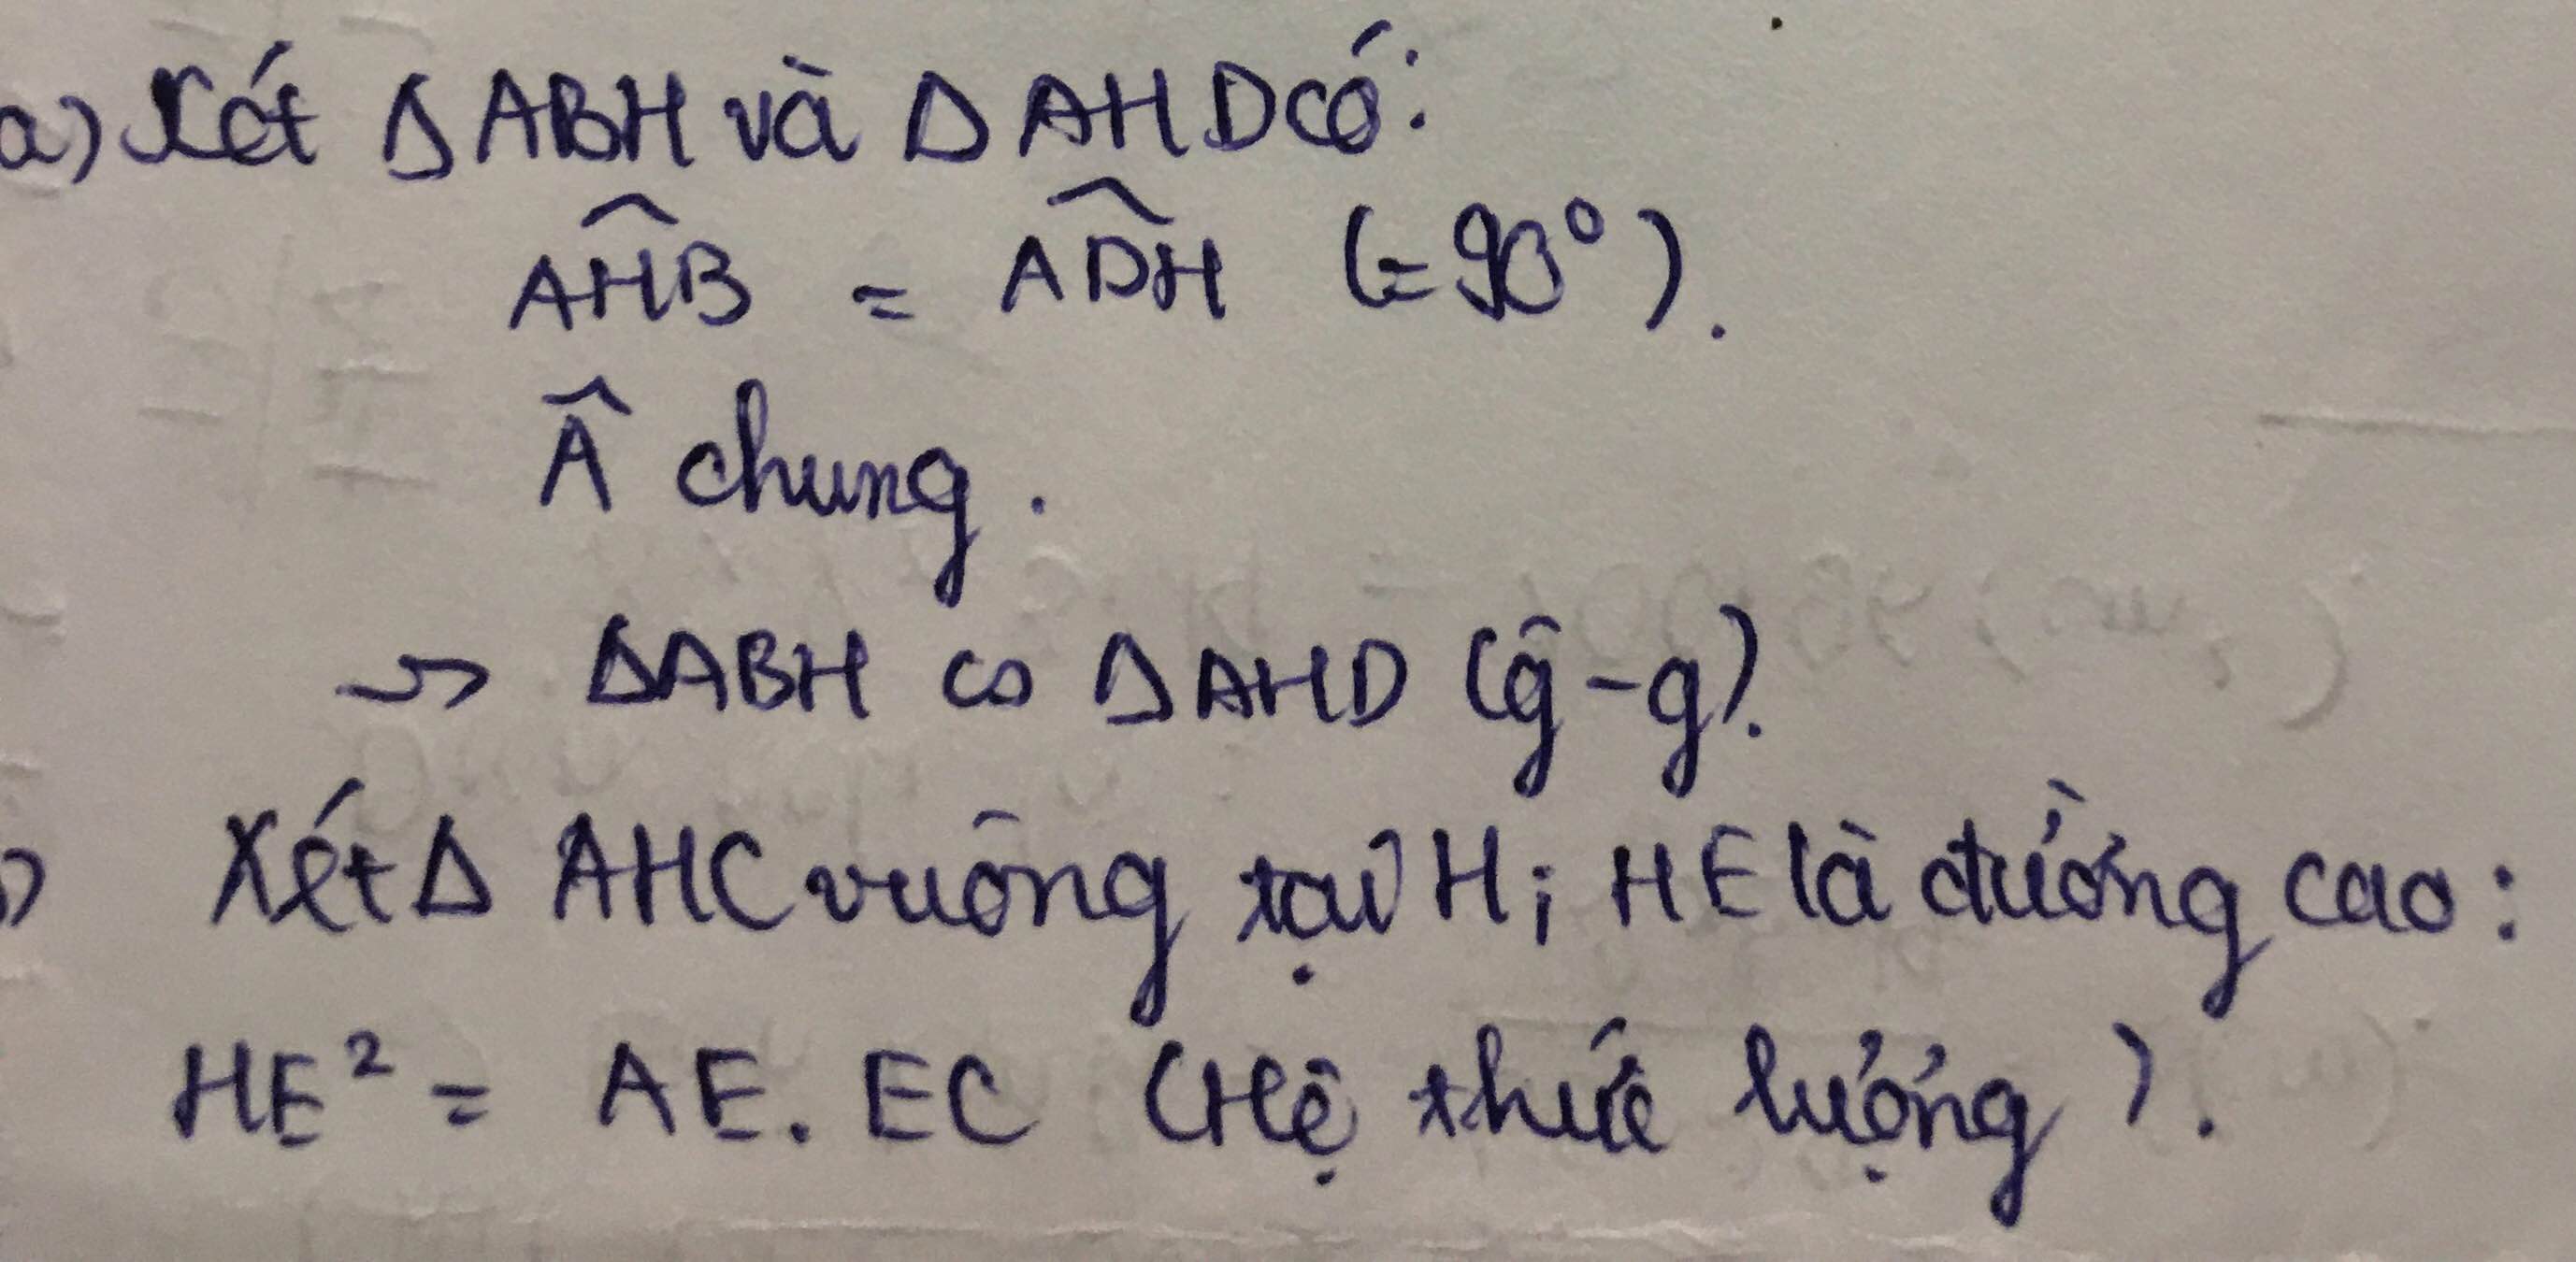 a) Xét Δ ABH và Δ AHD có:
$\widehat{AHB}$ = $\widehat{ADH}$ (=90°).
Â chung.
→ ΔABH ∽ ΔAHD (g-g).
Xét Δ AHC vuông tại H; HE là đường cao:
HE² = AE. EC (Hệ thức lượng).